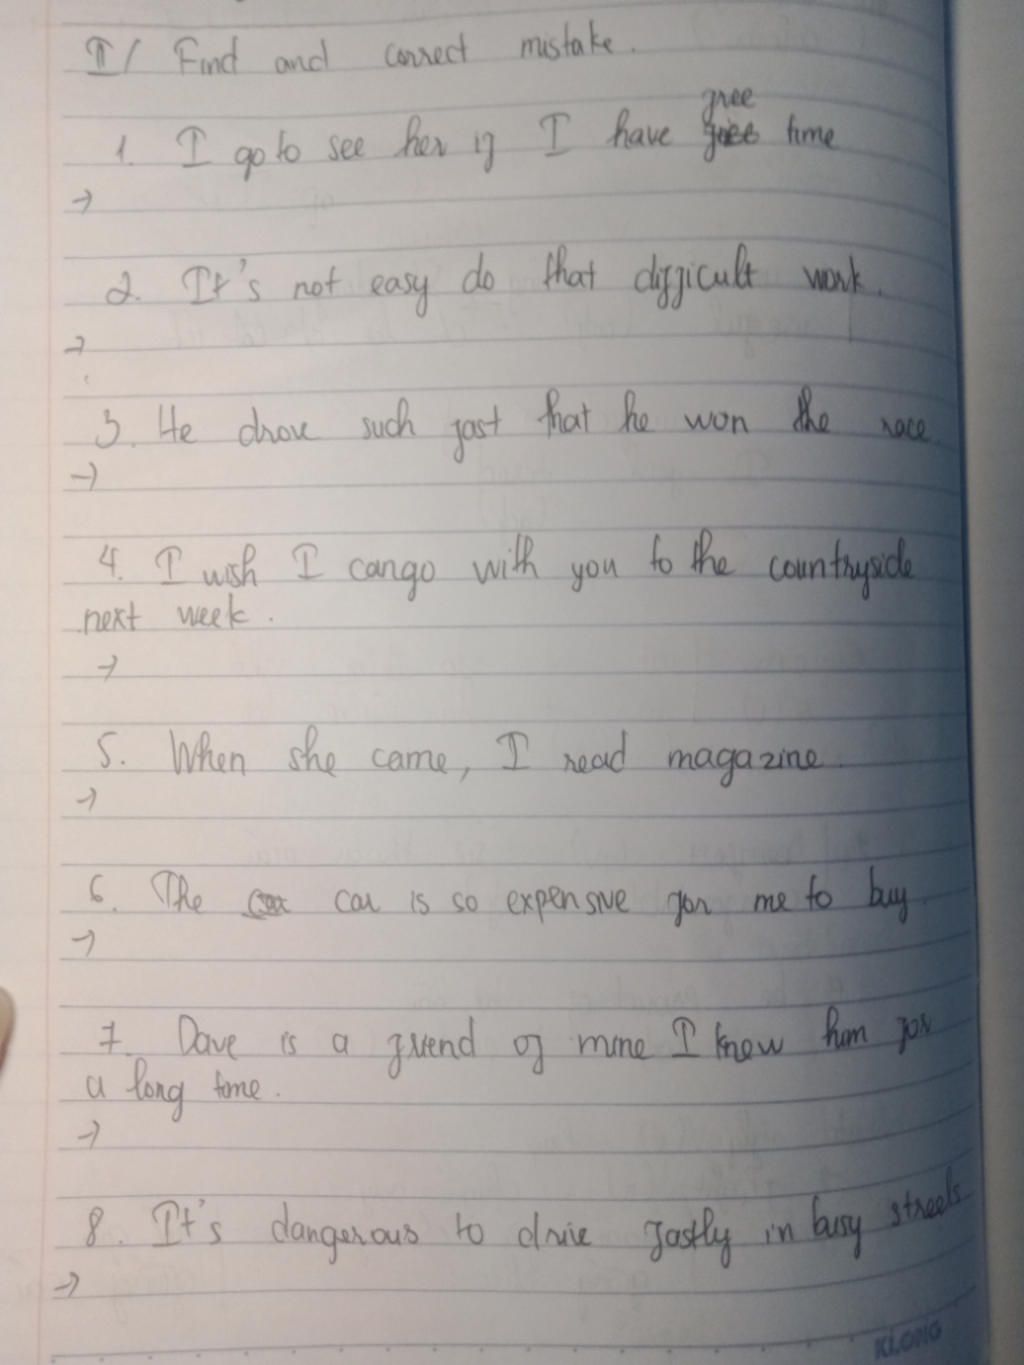 II/ Find and correct mistake.
free
1. I go to see her if I have time
→
2. It's not easy do that difficult work.
→
3. He drove such fast that he won the race
→
4. I wish I can go with you to the countryside
next week.
→
5. When she came, I read magazine
→
6. The car is so expensive for me to buy
→
7. Dave is a friend of mine I know him for
a long time.
→
8. It's dangerous to drive fastly in busy streets
→
KLONG